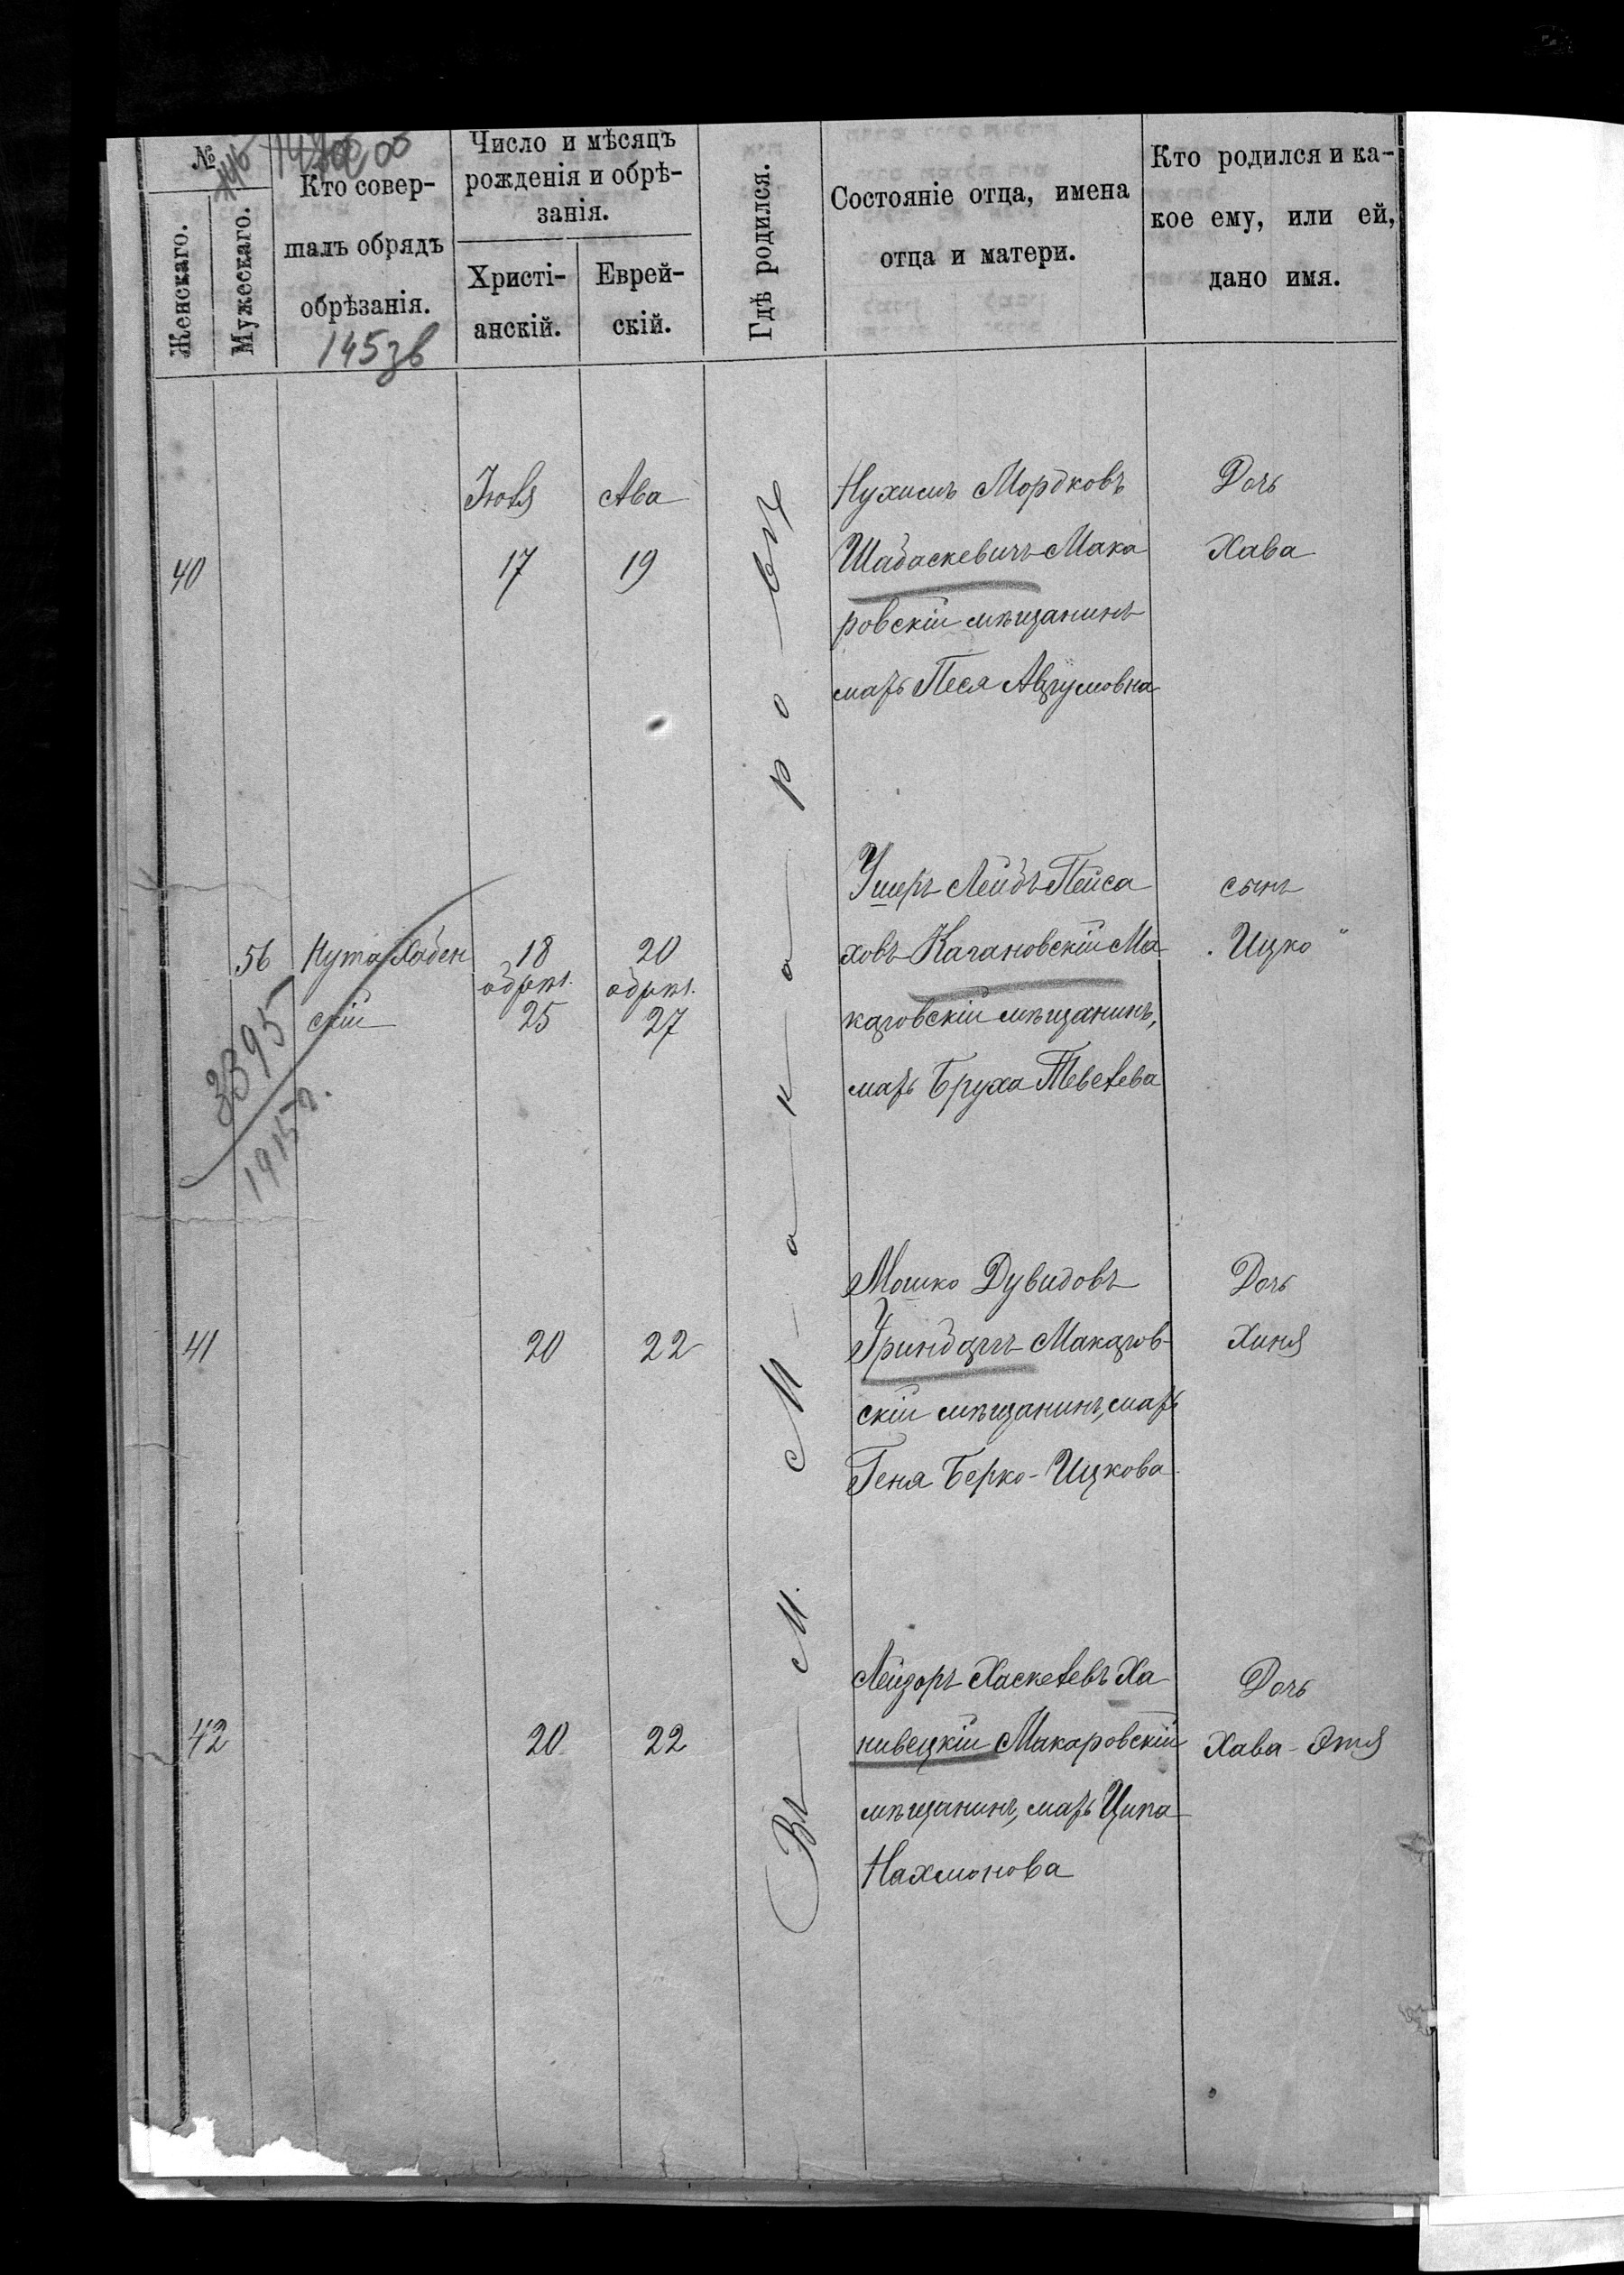 №
Женскаго.
Мужескаго.
Кто совер-
шалъ обрядъ
обрѣзанія.
145зв
Число и мѣсяцъ
рожденія и обрѣ-
занія.
Христі-
анскій.
Еврей-
скій.
Гдѣ родился.
Состояніе отца, имена
отца и матери.
Кто родился и ка-
кое ему, или ей,
дано имя.
Въ м. Макаровѣ
40
Іюля
17
Ава
19
Нухимъ Мордковъ
Шадаскевичъ Мака
ровскій мѣщанинъ
мать Песя Аврумовна
Дочь
Хава
56
Нута Хабен
скій
18
обрѣз.
25
20
обрѣз.
27
Ушеръ Лейбъ Пейса
ховъ Кагановскій Ма
каровскій мѣщанинъ,
мать Бруха Тевелева
сынъ
Ицко
3395
1915 г.
41
20
22
Мошко Дувидовъ
Гриндачъ Макаров-
скій мѣщанинъ, мать
Геня Берко-Ицкова.
Дочь
Хиня
42
20
22
Лейзоръ Хаскелевъ Ха
нивецкій Макаровскій
мѣщанинъ, мать Ципа
Нахмонова
Дочь
Хава-Этя